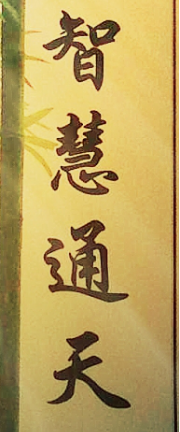 智慧通天